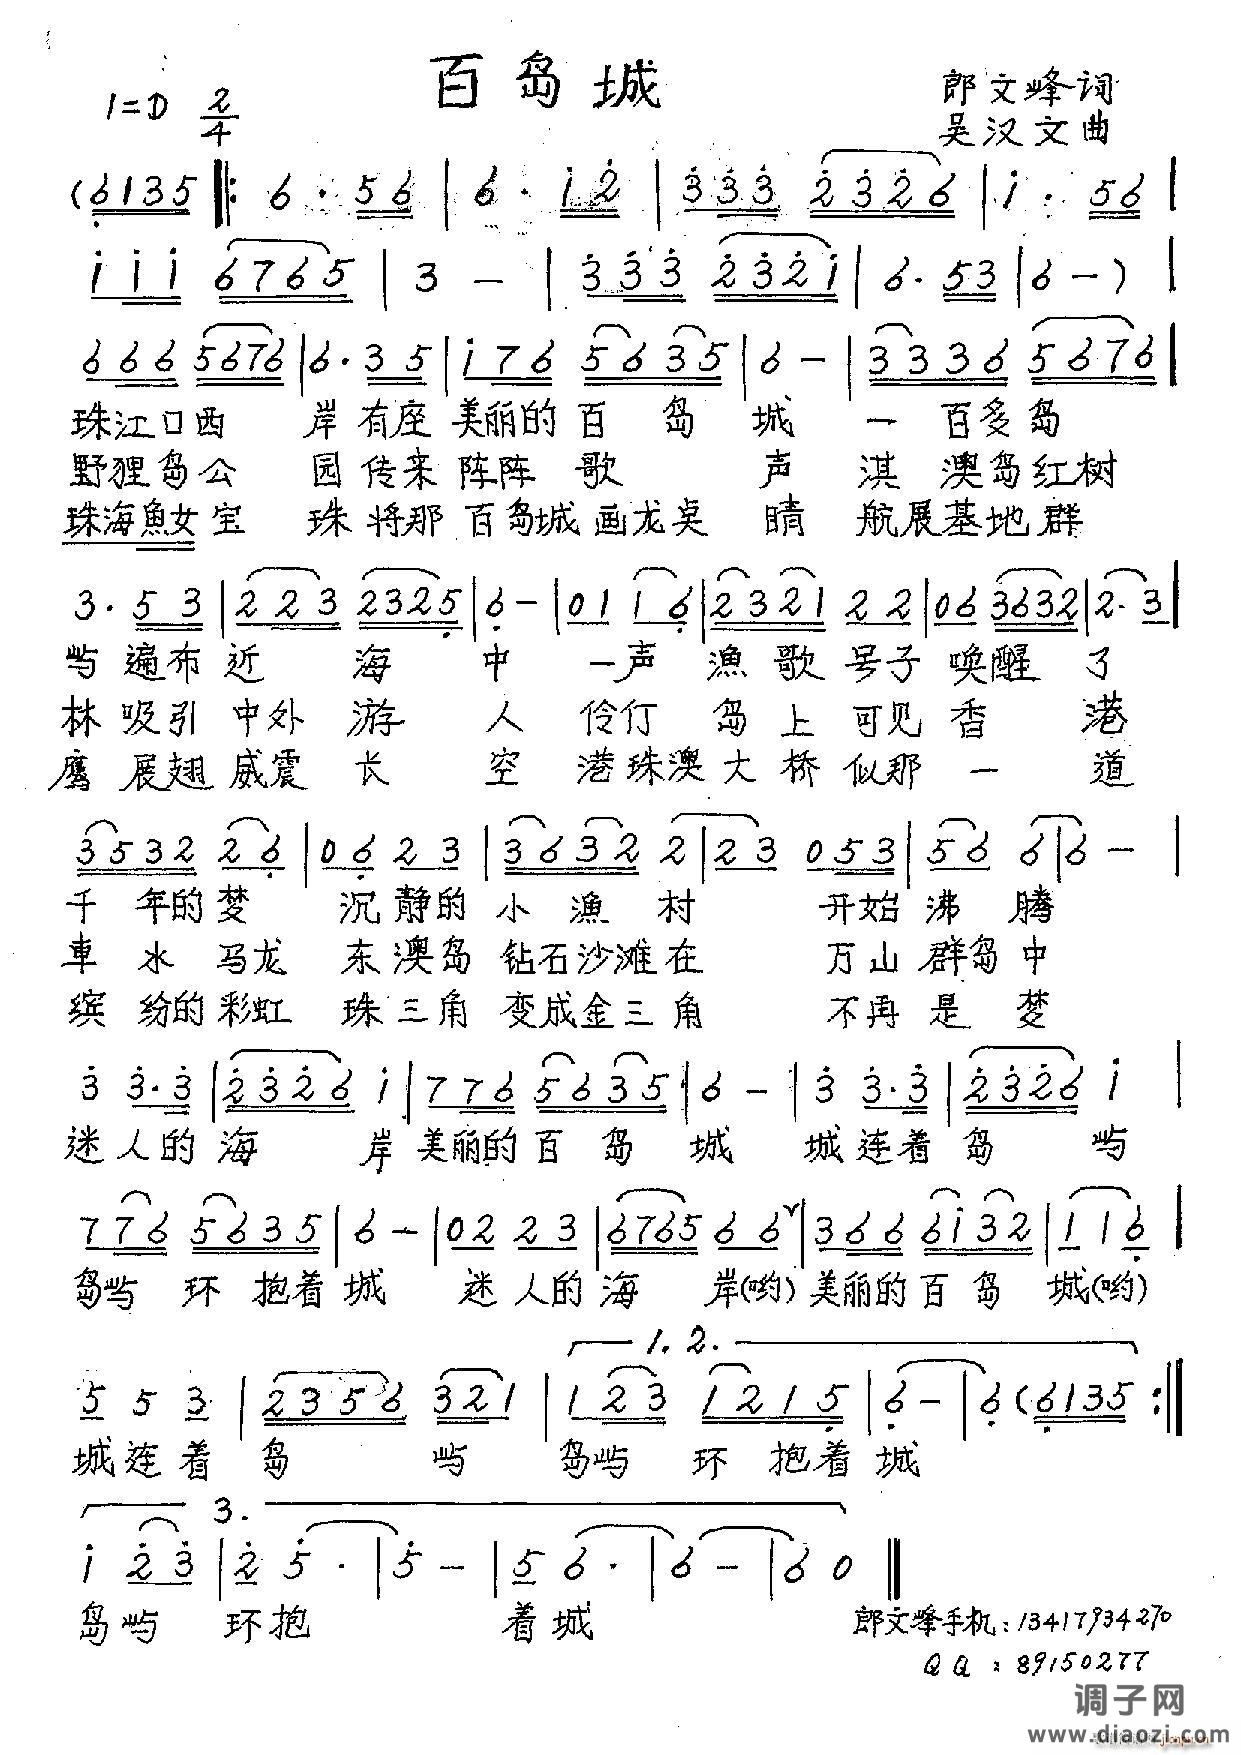 百岛城
1=D 2/4
郎文峰词
吴汉文曲
(6135 ‖: 6·56 | 6·12 | 333 2326 | 1·56 |
111 6765 | 3 - | 333 2321 | 6·53 | 6 - ) |
666 5676 | 6·35 | 176 5635 | 6 - | 3336 5676 |
珠江口西 岸有座美丽的百岛城 一百多岛
野狸岛公 园传来阵阵歌声 淇澳岛红树
珠海魚女宝 珠将那百岛城画龙点睛 航展基地群
3·53 | 223 2325 | 6 - | 01 16 | 2321 22 | 06 3632 | 2·3 |
屿遍布近海中 一声漁歌号子唤醒了
林吸引中外游人 伶仃岛上可见香港
鹰展翅威震长空 港珠澳大桥似那一道
3532 26 | 06 23 | 3632 2 | 23 053 | 56 6 | 6 - |
千年的梦 沉静的小漁村 开始沸腾
車水马龙 东澳岛钻石沙滩在 万山群岛中
缤纷的彩虹 珠三角变成金三角 不再是梦
3 3·3 | 2326 1 | 776 5635 | 6 - | 3 3·3 | 2326 1 |
迷人的海岸美丽的百岛城 城连着岛屿
776 5635 | 6 - | 02 23 | 6765 66 | 366 6132 | 11 6 |
岛屿环抱着城 迷人的海岸(哟)美丽的百岛城(哟)
1.2.
5 5 3 | 2356 321 | 1 23 1215 | 6 - | 6 (6135 :‖
城连着岛屿 岛屿环抱着城
3.
1 23 | 2 5· | 5 - | 5 6· | 6 - | 6 0 ‖
岛屿环抱着城
郎文峰手机:13417934270
QQ:89150277
调子网
www.diaozi.com